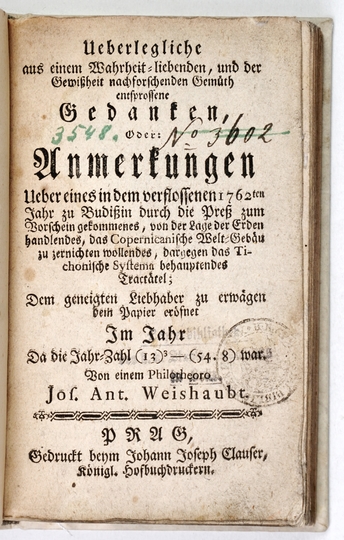 Ueberlegliche
aus einem Wahrheit-liebenden, und der
Gewißheit nachforschenden Gemüth
entsprossene
Gedanken,
3548. Oder: No 3602
Anmerkungen
Ueber eines in dem verflossenen 1762ten
Jahr zu Budißin durch die Preß zum
Vorschein gekommenes, von der Lage der Erden
handlendes, das Copernicanische Welt-Gebäu
zu zernichten wollendes, dargegen das Ti-
chonische Systema behauptendes
Tractätel;
Dem geneigten Liebhaber zu erwägen
dem Papier eröfnet
Im Jahr
Da die Jahr-Zahl (13)³ — (54. 8) war.
Von einem Philotheoro
Jos. Ant. Weishaubt.
PRAG,
Gedruckt beym Johann Joseph Clauser,
Königl. Hofbuchdruckern.